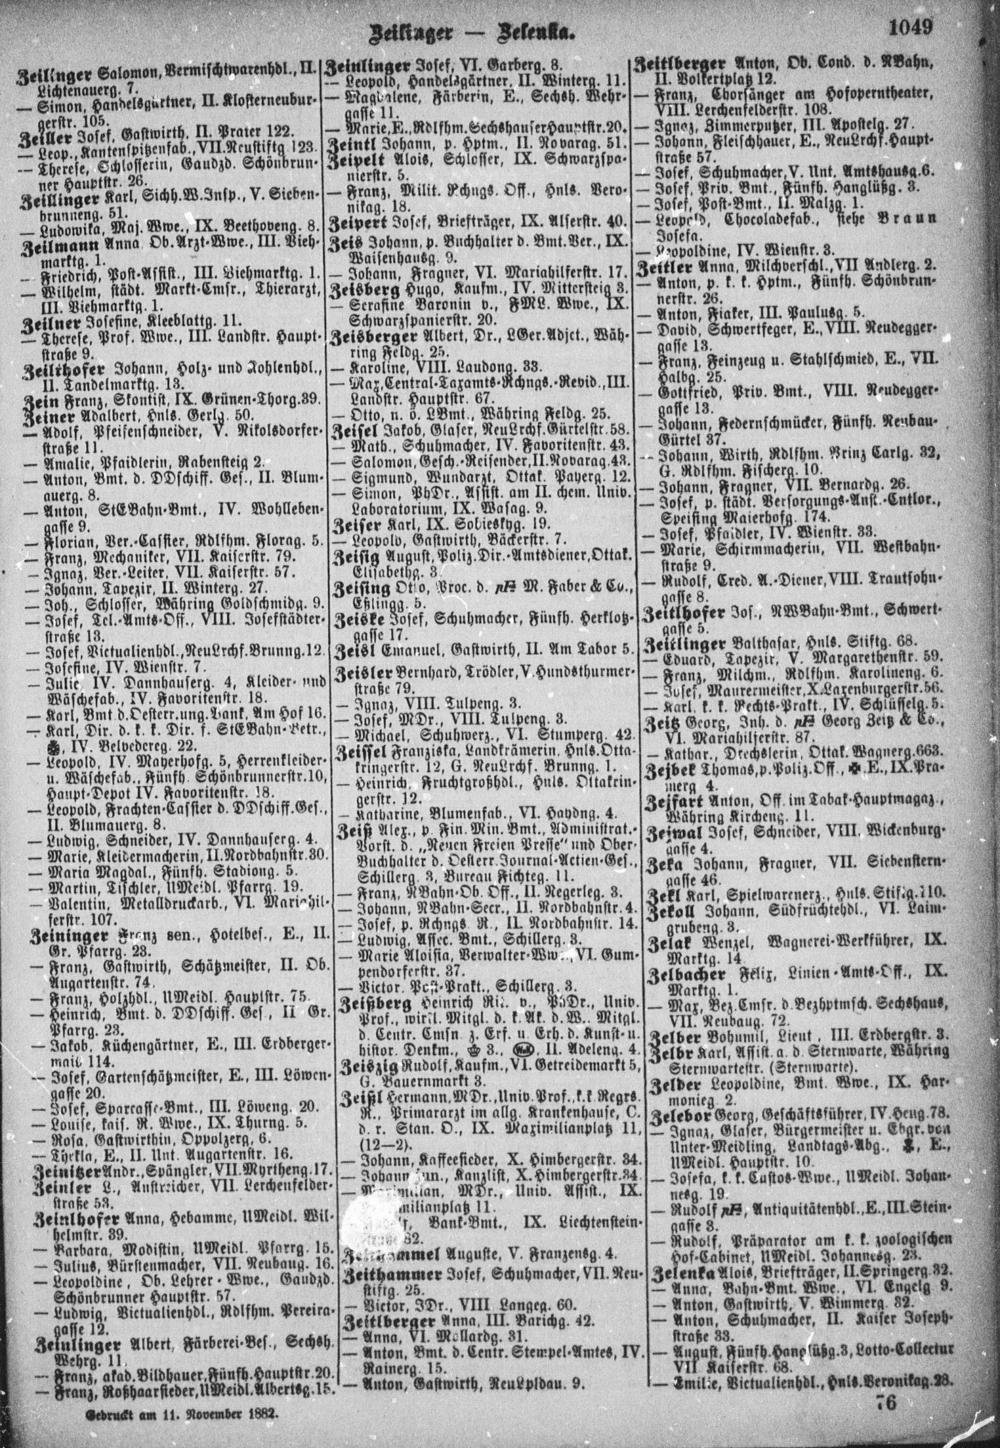 Zeilinger — Zelenka.
1049
Zeilinger Salomon, Vermischtwarenhdl., II.
Lichtenauerg. 7.
— Simon, Handelsgärtner, II. Klosterneubur-
gerstr. 105.
Zeiller Josef, Gastwirth, II. Prater 122.
— Leop., Kantenspitzenfab., VII. Neustiftg 123.
— Therese, Schlosserin, Gaudzd. Schönbrun-
ner Hauptstr. 26.
Zeillinger Karl, Sichh. W. Insp., V. Sieben-
brunneng. 51.
— Ludowika, Maj. Wwe., IX. Beethoveng. 8.
Zeilmann Anna, Ob. Arzt-Wwe., III. Vieh-
marktg. 1.
— Friedrich, Post-Assist., III. Viehmarktg. 1.
— Wilhelm, städt. Markt-Cmsr., Thierarzt,
III. Viehmarktg. 1.
Zeilner Josefine, Kleeblattg. 11.
— Therese, Prof. Wwe., III. Landstr. Haupt-
straße 9.
Zeilthofer Johann, Holz- und Kohlenhdl.,
II. Tandelmarktg. 13.
Zein Franz, Skontist, IX. Grünen-Thorg. 39.
Zeiner Adalbert, Hnls. Gerlg. 50.
— Adolf, Pfeifenschneider, V. Nikolsdorfer-
straße 11.
— Amalie, Pfaidlerin, Rabensteig 2.
— Anton, Bmt. d. DDschiff. Ges., II. Blum-
auerg. 8.
— Anton, StEBahn-Bmt., IV. Wohlleben-
gasse 9.
— Florian, Ver.-Cassier, Rdlfhm. Florag. 5.
— Franz, Mechaniker, VII. Kaiserstr. 79.
— Ignaz, Ver.-Leiter, VII. Kaiserstr. 57.
— Johann, Tapezir, II. Winterg. 27.
— Joh., Schlosser, Währing Goldschmidg. 9.
— Josef, Tel.-Amts-Off., VIII. Josefstädter-
straße 13.
— Josef, Victualienhdl., NeuLrchf. Brunng. 12.
— Josefine, IV. Wienstr. 7.
— Julie, IV. Dannhauserg. 4, Kleider- und
Wäschefab., IV. Favoritenstr. 18.
— Karl, Bmt d. Oesterr.ung. Bank, Am Hof 16.
— Karl, Dir. d. k. k. Dir. f. StEBahn-Betr.,
IV. Belvedereg. 22.
— Leopold, IV. Mayerhofg. 5, Herrenkleider-
u. Wäschefab., Fünfh. Schönbrunnerstr. 10,
Haupt-Depot IV. Favoritenstr. 18.
— Leopold, Frachten-Cassier d. DDschiff. Ges.,
II. Blumauerg. 8.
— Ludwig, Schneider, IV. Dannhauserg. 4.
— Marie, Kleidermacherin, II. Nordbahnstr. 30.
— Maria Magdal., Fünfh. Stadiong. 5.
— Martin, Tischler, UMeidl. Pfarrg. 19.
— Valentin, Metalldruckarb., VI. Mariahil-
ferstr. 107.
Zeininger Franz sen., Hotelbes., E., II.
Gr. Pfarrg. 23.
— Franz, Gastwirth, Schätzmeister, II. Ob.
Augartenstr. 74.
— Franz, Holzhdl., UMeidl. Hauptstr. 75.
— Heinrich, Bmt. d. DDschiff. Ges., II Gr.
Pfarrg. 23.
— Jakob, Küchengärtner, E., III. Erdberger-
mais 114.
— Josef, Gartenschätzmeister, E., III. Löwen-
gasse 20.
— Josef, Sparcasse-Bmt., III. Löweng. 20.
— Louise, kais. R. Wwe., IX. Thurng. 5.
— Rosa, Gastwirthin, Oppolzerg. 6.
— Thekla, E., II. Unt. Augartenstr. 16.
Zeinitzer Andr., Spängler, VII. Myrtheng. 17.
Zeinler L., Anstreicher, VII. Lerchenfelder-
straße 53.
Zeinlhofer Anna, Hebamme, UMeidl. Wil-
helmstr. 39.
— Barbara, Modistin, UMeidl. Pfarrg. 15.
— Julius, Bürstenmacher, VII. Neubaug. 16.
— Leopoldine, Ob. Lehrer-Wwe., Gaudzd.
Schönbrunner Hauptstr. 57.
— Ludwig, Victualienhdl., Rdlfhm. Pereira-
gasse 12.
Zeinlinger Albert, Färberei-Bes., Sechsh.
Wehrg. 11.
— Franz, akad. Bildhauer, Fünfh. Hauptstr. 20.
— Franz, Roßhaarsieder, UMeidl. Albertsg. 15.
Gedruckt am 11. November 1882.
Zeinlinger Josef, VI. Garberg. 8.
— Leopold, Handelsgärtner, II. Winterg. 11.
— Magdalene, Färberin, E., Sechsh. Wehr-
gasse 11.
— Marie, E., Rdlfhm. Sechshauser Hauptstr. 20.
Zeintl Johann, p. Hptm., II. Novarag. 51.
Zeipelt Alois, Schlosser, IX. Schwarzspa-
nierstr. 5.
— Franz, Milit. Rchngs. Off., Hnls. Vero-
nikag. 18.
Zeipert Josef, Briefträger, IX. Alserstr. 40.
Zeis Johann, p. Buchhalter d. Bmt. Ver., IX.
Waisenhausg. 9.
— Johann, Fragner, VI. Mariahilferstr. 17.
Zeisberg Hugo, Kaufm., IV. Nittersteig 3.
— Serafine Baronin v., FML. Wwe., IX.
Schwarzspanierstr. 20.
Zeisberger Albert, Dr., LGer. Adjct., Wäh-
ring Feldg. 25.
— Karoline, VIII. Laudong. 33.
— Max, Central-Taxamts-Rchngs.-Revid., III.
Landstr. Hauptstr. 67.
— Otto, n. ö. LBmt., Währing Feldg. 25.
Zeisel Jakob, Glaser, NeuLrchf. Gürtelstr. 58.
— Math., Schuhmacher, IV. Favoritenstr. 43.
— Salomon, Gesch.-Reisender, II. Novarag. 43.
— Sigmund, Wundarzt, Ottak. Payerg. 12.
— Simon, PhDr., Assist. am II. chem. Univ.
Laboratorium, IX. Wasag. 9.
Zeiser Karl, IX. Sobieskyg. 19.
— Leopold, Gastwirth, Bäckerstr. 7.
Zeisig August, Poliz. Dir.-Amtsdiener, Ottak.
Elisabethg. 3.
Zeising Otto, Proc. d. M. Faber & Co.,
Eßlingg. 5.
Zeiske Josef, Schuhmacher, Fünfh. Herklotz-
gasse 17.
Zeisl Emanuel, Gastwirth, II. Am Tabor 5.
Zeisler Bernhard, Trödler, V. Hundsthurmer-
straße 79.
— Ignaz, VIII. Tulpeng. 3.
— Josef, MDr., VIII. Tulpeng. 3.
— Michael, Schuhwerz., VI. Stumperg. 42.
Zeissel Franziska, Landkrämerin, Hnls. Otta-
kringerstr. 12, G. NeuLrchf. Brunng. 1.
— Heinrich, Fruchtgroßhdl., Hnls. Ottakrin-
gerstr. 12.
— Katharine, Blumenfab., VI. Haydng. 4.
Zeiß Alex., p. Fin. Min. Bmt., Administrat.-
Vorst. d. „Neuen Freien Presse“ und Ober-
Buchhalter d. Oesterr. Journal-Actien-Ges.,
Schillerg. 3, Bureau Fichteg. 11.
— Franz, NBahn-Ob. Off., II. Negerleg. 3.
— Johann, NBahn-Secr., II. Nordbahnstr. 4.
— Josef, p. Rchngs R., II. Nordbahnstr. 14.
— Ludwig, Assec. Bmt., Schillerg. 3.
— Marie Aloisia, Verwalter-Wwe., VI. Gum-
pendorferstr. 37.
— Victor, Post-Prakt., Schillerg. 3.
Zeißberg Heinrich Rit. v., PhDr., Univ.
Prof., wirkl. Mitgl. d. k. Ak. d. W. Mitgl.
d. Centr. Cmsn z. Erf. u. Erh. d. Kunst- u.
histor. Denkm., 3., II. Adeleng. 4.
Zeiszig Rudolf, Kaufm., VI. Getreidemarkt 5,
G. Bauernmarkt 3.
Zeißl Hermann, MDr., Univ. Prof., k. k. Regrs.
R., Primararzt im allg. Krankenhause, C.
d. r. Stan. O., IX. Maximilianplatz 11,
(12—2).
— Johann, Kaffeesieder, X. Himbergerstr. 34.
— Johann, Kanzlist, X. Himbergerstr. 34.
MDr., Univ. Assist., IX.
Maximilianplatz 11.
Bank-Bmt., IX. Liechtenstein-
Auguste, V. Franzensg. 4.
Zeithammer Josef, Schuhmacher, VII. Neu-
stiftg. 25.
— Victor, JDr., VIII Langeg. 60.
Zeitlberger Anna, III. Barichg. 42.
— Anna, VI. Mollardg. 31.
— Anton, Bmt. d. Centr. Stempel-Amtes, IV.
Rainerg. 15.
— Anton, Gastwirth, NeuLpldau. 9.
Zeitlberger Anton, Ob. Cond. d. NBahn,
II. Volkertplatz 12.
— Franz, Chorsänger am Hofoperntheater,
VIII. Lerchenfelderstr. 108.
— Ignaz, Zimmerputzer, III. Apostelg. 27.
— Johann, Fleischhauer, E., NeuLrchf. Haupt-
straße 57.
— Josef, Schuhmacher, V. Unt. Amtshausg. 6.
— Josef, Priv. Bmt., Fünfh. Hanglüßg. 3.
— Josef, Post-Bmt., II. Malzg. 1.
— Leopold, Chocoladefab., siehe Braun
Josefa.
— Leopoldine, IV. Wienstr. 3.
Zeitler Anna, Milchverschl., VII Andlerg. 2.
— Anton, p. k. k. Hptm., Fünfh. Schönbrun-
nerstr. 26.
— Anton, Fiaker, III. Paulusg. 5.
— David, Schwertfeger, E., VIII. Neudegger-
gasse 13.
— Franz, Feinzeug u. Stahlschmied, E., VII.
Halbg. 25.
— Gottfried, Priv. Bmt., VIII. Neudegger-
gasse 13.
— Johann, Federnschmücker, Fünfh. Neubau-
Gürtel 37.
— Johann, Wirth, Rdlfhm. Prinz Carlg. 32,
G. Rdlfhm. Fischerg. 10.
— Johann, Fragner, VII. Bernardg. 26.
— Josef, p. städt. Versorgungs-Anst.-Cntlor.,
Speising Maierhofg. 174.
— Josef, Pfaidler, IV. Wienstr. 33.
— Marie, Schirmmacherin, VII. Westbahn-
straße 9.
— Rudolf, Cred. A.-Diener, VIII. Trautsohn-
gasse 8.
Zeitlhofer Jos., NWBahn-Bmt., Schwert-
gasse 5.
Zeitlinger Balthasar, Hnls. Stiftg. 68.
— Eduard, Tapezir, V. Margarethenstr. 59.
— Franz, Milchm., Rdlfhm. Karolineng. 6.
— Josef, Maurermeister, X. Laxenburgerstr. 56.
— Karl, k. k. Rechts-Prakt., IV. Schlüsselg. 5.
Zeitz Georg, Inh. d. Georg Zeitz & Co.,
VI. Mariahilferstr. 87.
— Kathar., Drechslerin, Ottak. Wagnerg. 663.
Zejbek Thomas, p. Poliz. Off., E., IX. Pra-
merg 4.
Zejfart Anton, Off. im Tabak-Hauptmagaz.,
Währing Kircheng. 11.
Zejwal Josef, Schneider, VIII. Wickenburg-
gasse 4.
Zeka Johann, Fragner, VII. Siebenstern-
gasse 46.
Zekl Karl, Spielwarenerz., Hnls. Stiftg. 110.
Zekoll Johann, Südfrüchtehdl., VI. Laim-
grubeng. 3.
Zelak Wenzel, Wagnerei-Werkführer, IX.
Marktg. 14
Zelbacher Felix, Linien-Amts-Off., IX.
Marktg. 1.
— Max, Bez. Cmsr. d. Bezhptmsch. Sechshaus,
VII. Neubaug. 72.
Zelber Bohumil, Lieut, III. Erdbergstr. 3.
Zelbr Karl, Assist. a. d. Sternwarte, Währing
Sternwartestr. (Sternwarte).
Zelder Leopoldine, Bmt. Wwe., IX. Har-
monieg. 2.
Zelebor Georg, Geschäftsführer, IV. Heug. 78.
— Ignaz, Glaser, Bürgermeister u. Ehgr. von
Unter-Meidling, Landtags-Abg., E.,
UMeidl. Hauptstr. 10.
— Josefa, k. k. Custos-Wwe., UMeidl. Johan-
nesg. 19.
— Rudolf, Antiquitätenhdl., E., III. Stein-
gasse 3.
— Rudolf, Präparator am k. k. zoologischen
Hof-Cabinet, UMeidl. Johannesg. 23.
Zelenka Alois, Briefträger, II. Springerg. 32.
— Anna, Bahn-Bmt. Wwe., VI. Engelg 9.
— Anton, Gastwirth, V. Wimmerg. 32.
— Anton, Schuhmacher, II. Kaiser Joseph-
straße 33.
— August, Fünfh. Hanglüßg. 3, Lotto-Collectur
VII Kaiserstr. 68.
— Emilie, Victualienhdl., Hnls. Veronikag. 28.
76